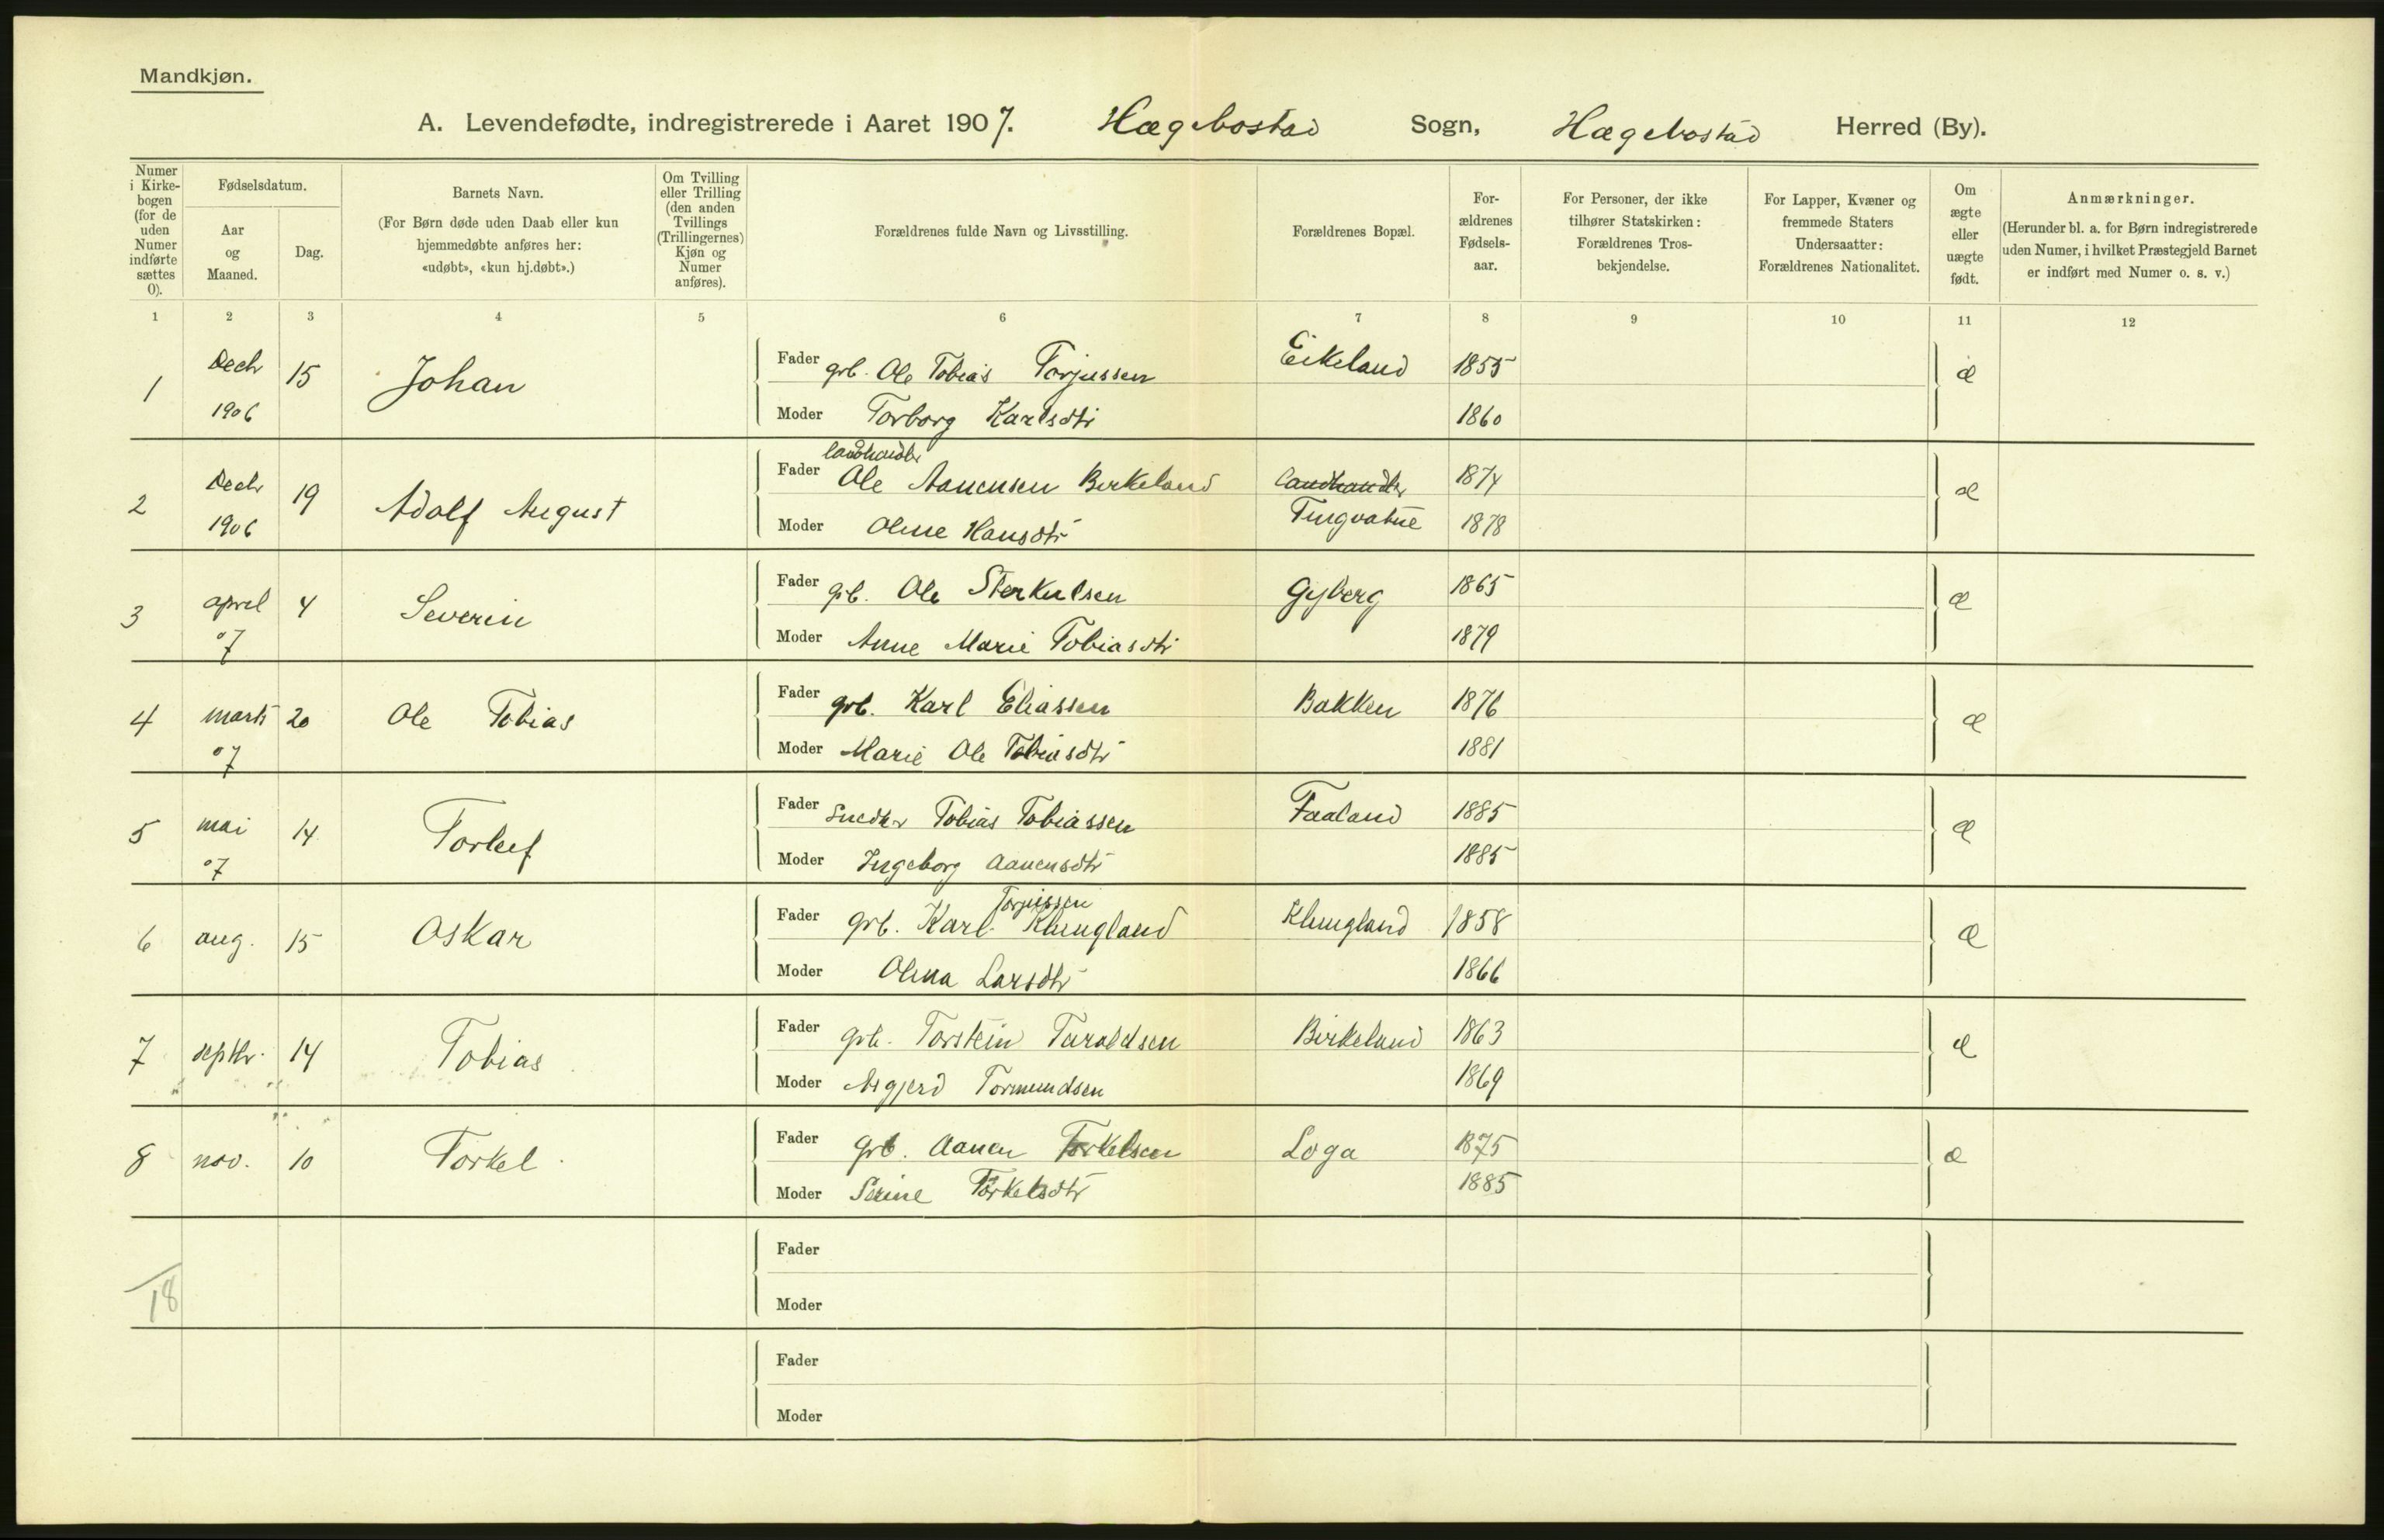 Mandkjøn.
A. Levendefødte, indregistrerede i Aaret 1907. Hægebostad Sogn, Hægebostad Herred (By).
Numer i Kirkebogen (for de uden Numer indførte sættes 0).
Fødselsdatum.
Aar og Maaned.
Dag.
Barnets Navn.
(For Børn døde uden Daab eller kun hjemmedøbte anføres her: «udøbt», «kun hj.døbt».)
Om Tvilling eller Trilling (den anden Tvillings (Trillingernes) Kjøn og Numer anføres).
Forældrenes fulde Navn og Livsstilling.
Forældrenes Bopæl.
Forældrenes Fødselsaar.
For Personer, der ikke tilhører Statskirken: Forældrenes Trosbekjendelse.
For Lapper, Kvæner og fremmede Staters Undersaatter: Forældrenes Nationalitet.
Om ægte eller uægte født.
Anmærkninger.
(Herunder bl. a. for Børn indregistrerede uden Numer, i hvilket Præstegjeld Barnet er indført med Numer o. s. v.)
1 2 3 4 5 6 7 8 9 10 11 12
1 Decbr 1906 15 Johan Fader grb. Ole Tobias Torjussen Eikeland 1855 æ
Moder Torborg Karlsdtr 1860
2 Decbr 1906 19 Adolf August Fader landhandler Ole Aanensen Birkeland landhandler 1874 æ
Moder Oline Hansdtr Tingvatne 1878
3 april 07 4 Severin Fader grb. Ole Sterkulsen Gyberg 1865 æ
Moder Anne Marie Tobiasdtr 1879
4 marts 07 20 Ole Tobias Fader grb. Karl Eliassen Bakken 1876 æ
Moder Marie Ole Tobiasdtr 1881
5 mai 07 14 Torleif Fader Snedker Tobias Tobiassen Faaland 1885 æ
Moder Ingeborg Aanensdtr 1885
6 aug. 15 Oskar Fader grb. Karl Torjussen Klungland Klungland 1858 æ
Moder Olena Larsdtr 1866
7 septbr. 14 Tobias Fader grb. Torstein Taraldsen Birkeland 1863 æ
Moder Asgjerd Tormundsen 1869
8 nov. 10 Torkel Fader grb. Aanen Torkelsen Loga 1875 æ
Moder Serine Torkelsdtr 1885
18
Fader
Moder
Fader
Moder